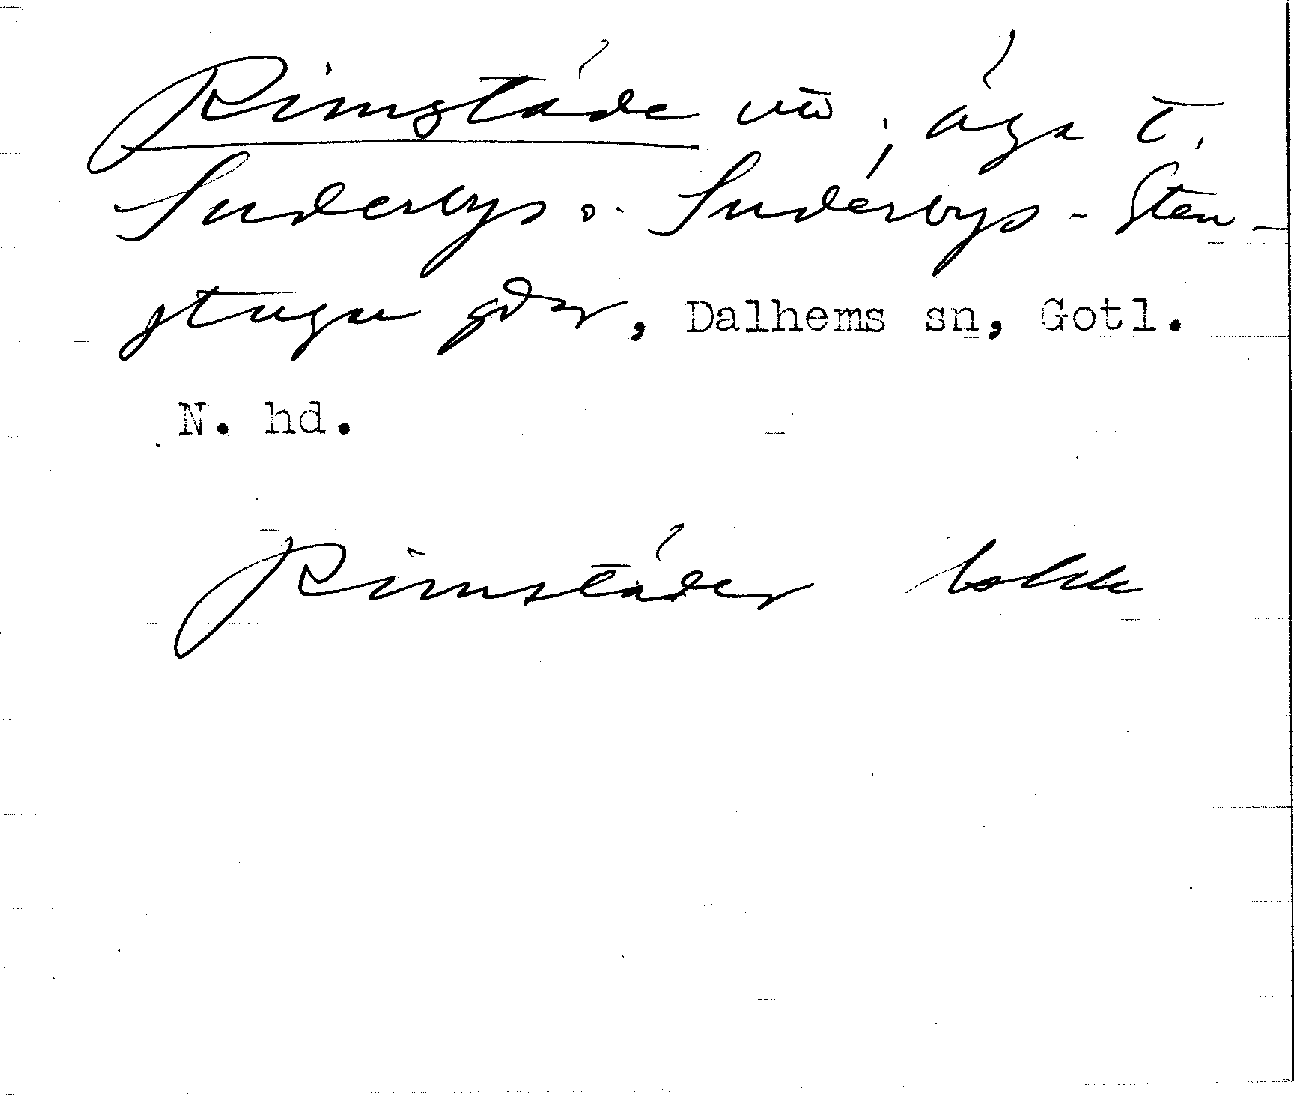 Rimståde vid, äga t.
Suderbys o. Suderbys-Sten-
stugu gdr, Dalhems sn, Gotl.
N. hd.
Rimståder